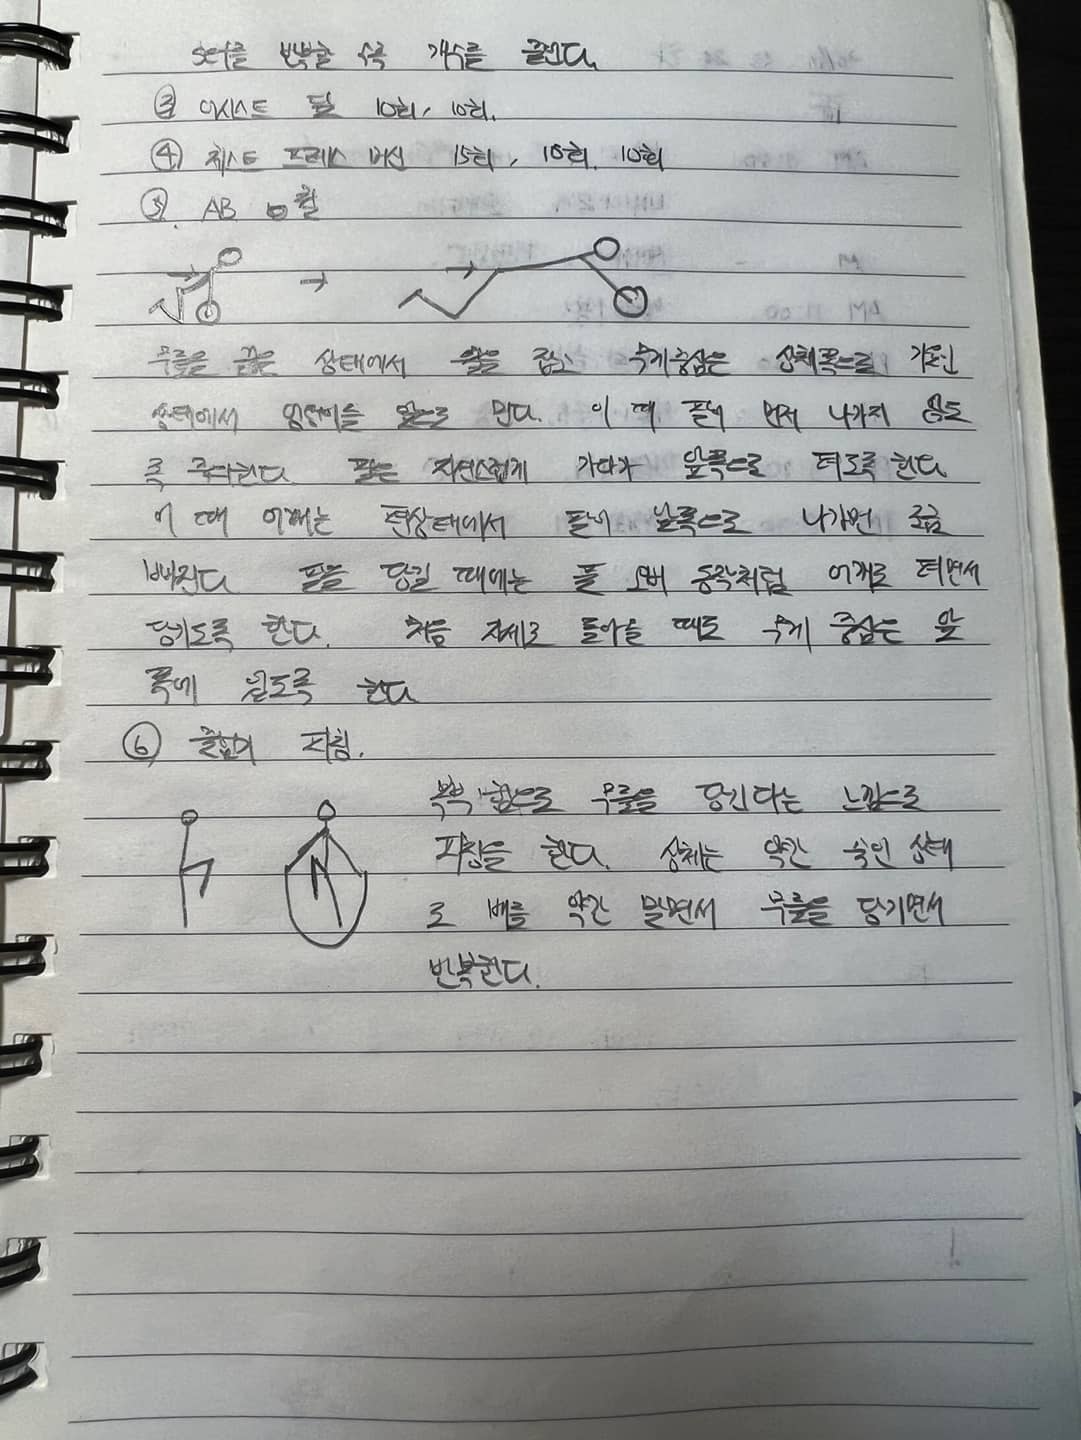 set를 반복할 수록 개수를 줄인다.
③ 어시스트 딥 10회, 10회.
④ 체스트 프레스 머신 15회, 10회, 10회
⑤ AB 휠
무릎을 꿇은 상태에서 휠을 잡고 무게중심은 상체쪽으로 가
상태에서 엉덩이를 앞으로 민다. 이 때 팔이 먼저 나가지 않도
록 주의한다. 팔은 자연스럽게 가다가 앞쪽으로 되도록 한다
이 때 어깨는 편상태에서 팔이 앞쪽으로 나가면 조금
빠진다 팔을 당길 때에는 풀 오버 동작처럼 어깨로 되면서
당기도록 한다. 처음 자세로 돌아올 때도 무게 중심은 앞
쪽에 있도록 한다
⑥ 줄넘기 피칭.
복부 힘으로 무릎을 당긴다는 느낌으로
피칭을 한다. 상체는 약간 숙인 상태
로 배를 약간 말면서 무릎을 당기면서
반복한다.